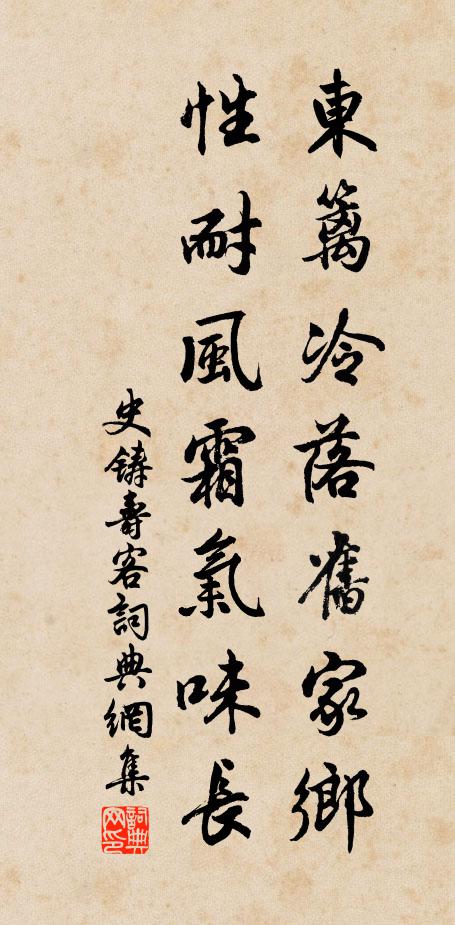 東籬冷落舊家鄉
性耐風霜氣味長
史鑄壽客詞典網集
詞典网印